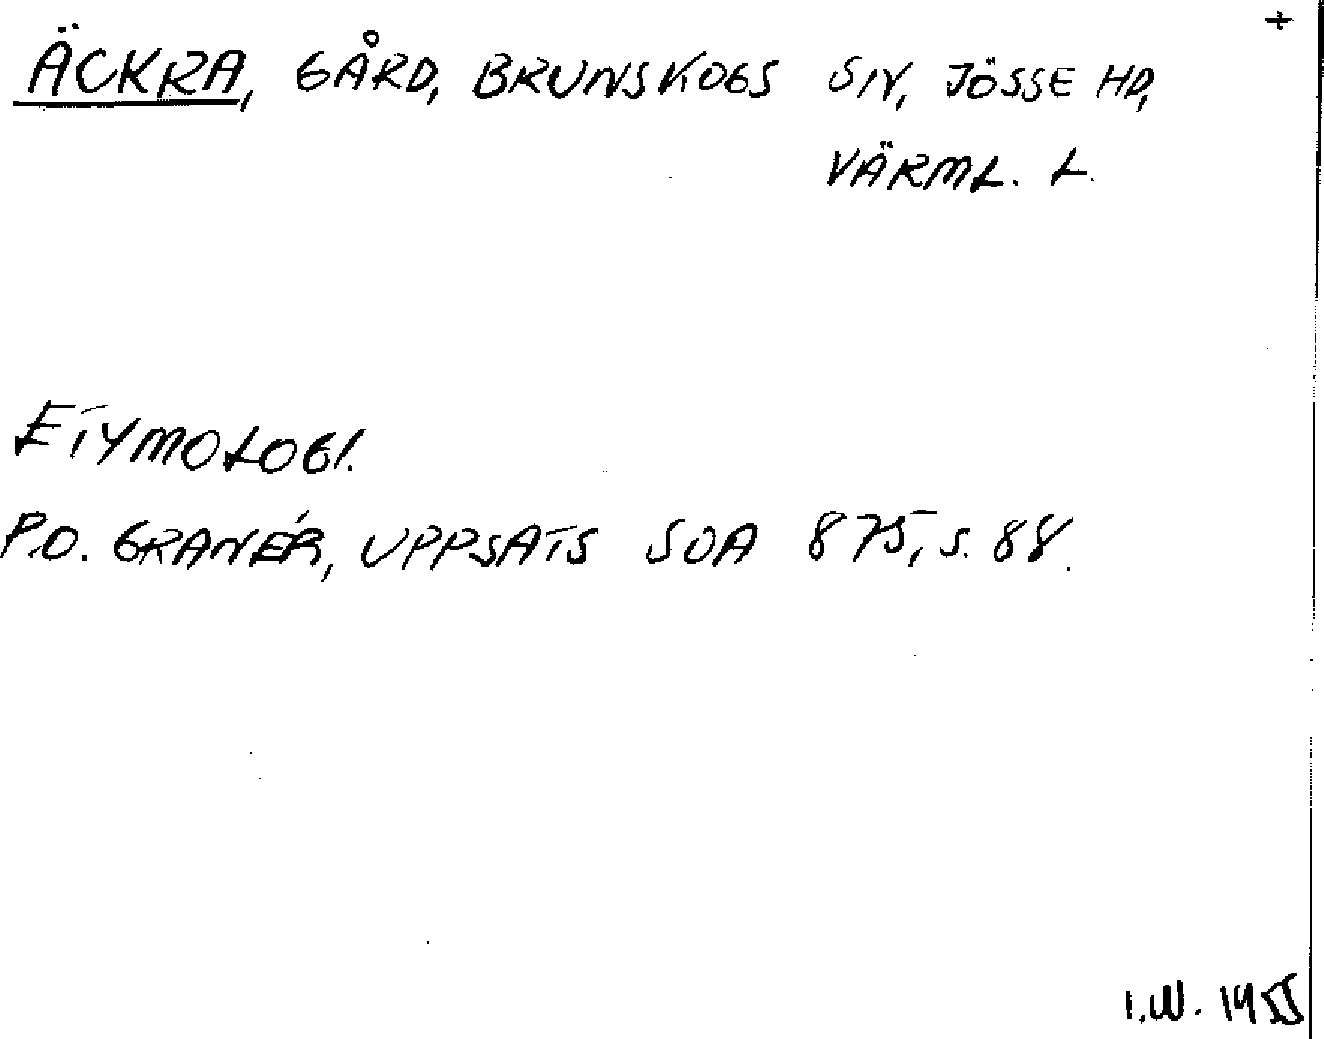 +
ÄCKRA, GÅRD, BRUNSKOGS SN, JÖSSE HD,
VÄRML. L.
ETYMOLOGI.
P.O. GRANÉR, UPPSATS SOA 875, S. 88.
I.W. 1955